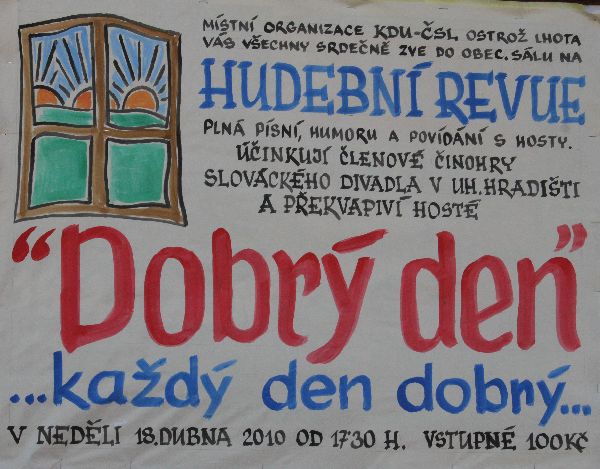 MÍSTNÍ ORGANIZACE KDU-ČSL OSTROŽ LHOTA
VÁS VŠECHNY SRDEČNĚ ZVE DO OBEC. SÁLU NA
HUDEBNÍ REVUE
PLNÁ PÍSNÍ, HUMORU A POVÍDÁNÍ S HOSTY.
ÚČINKUJÍ ČLENOVÉ ČINOHRY
SLOVÁCKÉHO DIVADLA V UH. HRADIŠTI
A PŘEKVAPIVÍ HOSTÉ
“Dobrý den”
...každý den dobrý...
V NEDĚLI 18. DUBNA 2010 OD 1730 H. VSTUPNÉ 100KČ